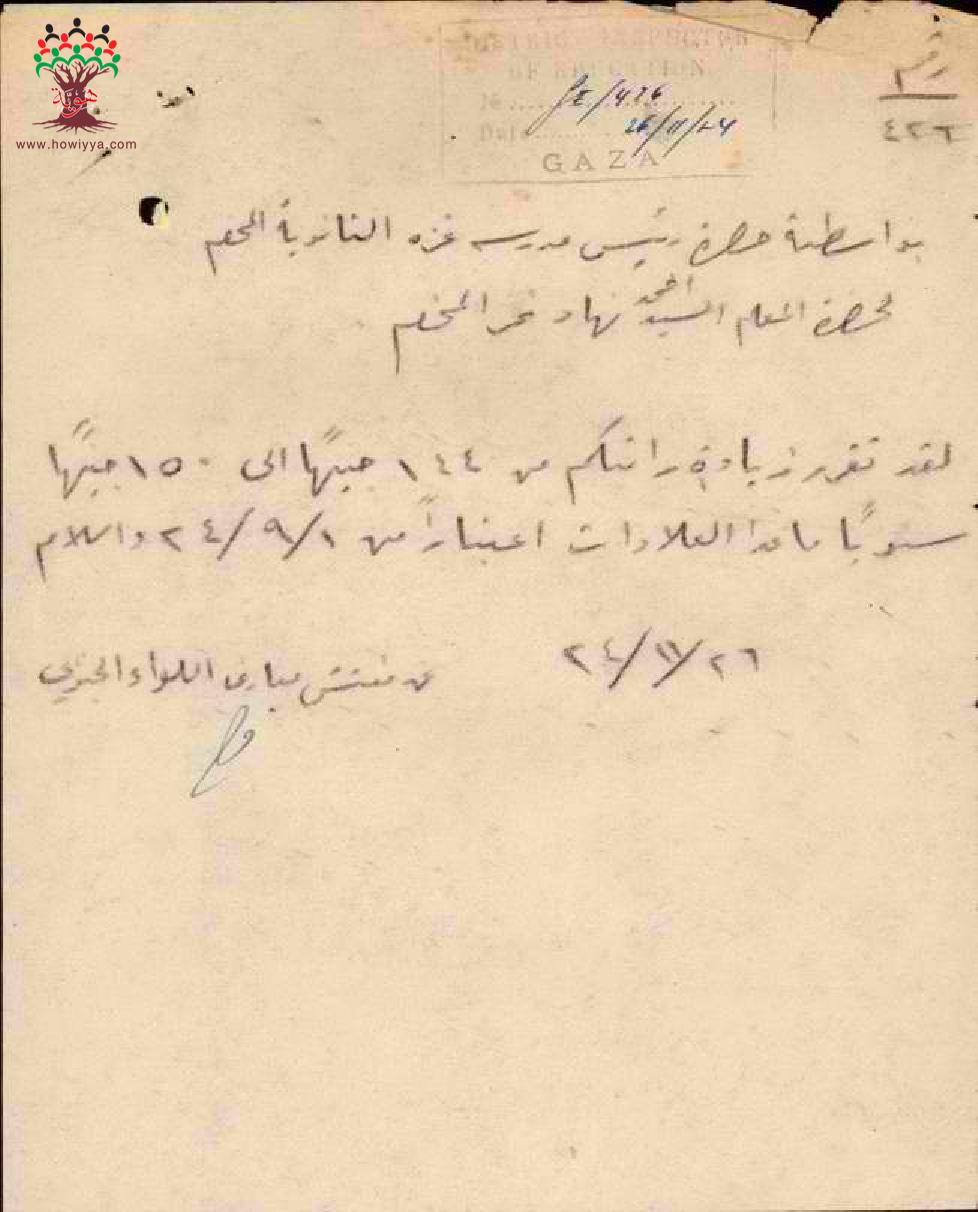 هوية
www.howiyya.com
DISTRICT INSPECTOR
OF EDUCATION
GE/426
Date 26/11/24
GAZA
رقم
٤٢٦
بواسطة حضرة رئيس مدرسة غزه الثانوية المحترم
لحضرة المعلم السيد احمد نهاد المحترم
لقد تقرر زيادة راتبكم من ١٤٤ جنيهًا الى ١٥٠ جنيهًا
سنويًا ما عدا العلاوات اعتبارًا من ٢٤/٩/١ والسلام
٢٤/١١/٢٦
عن مفتش معارف اللواء الجنوبي